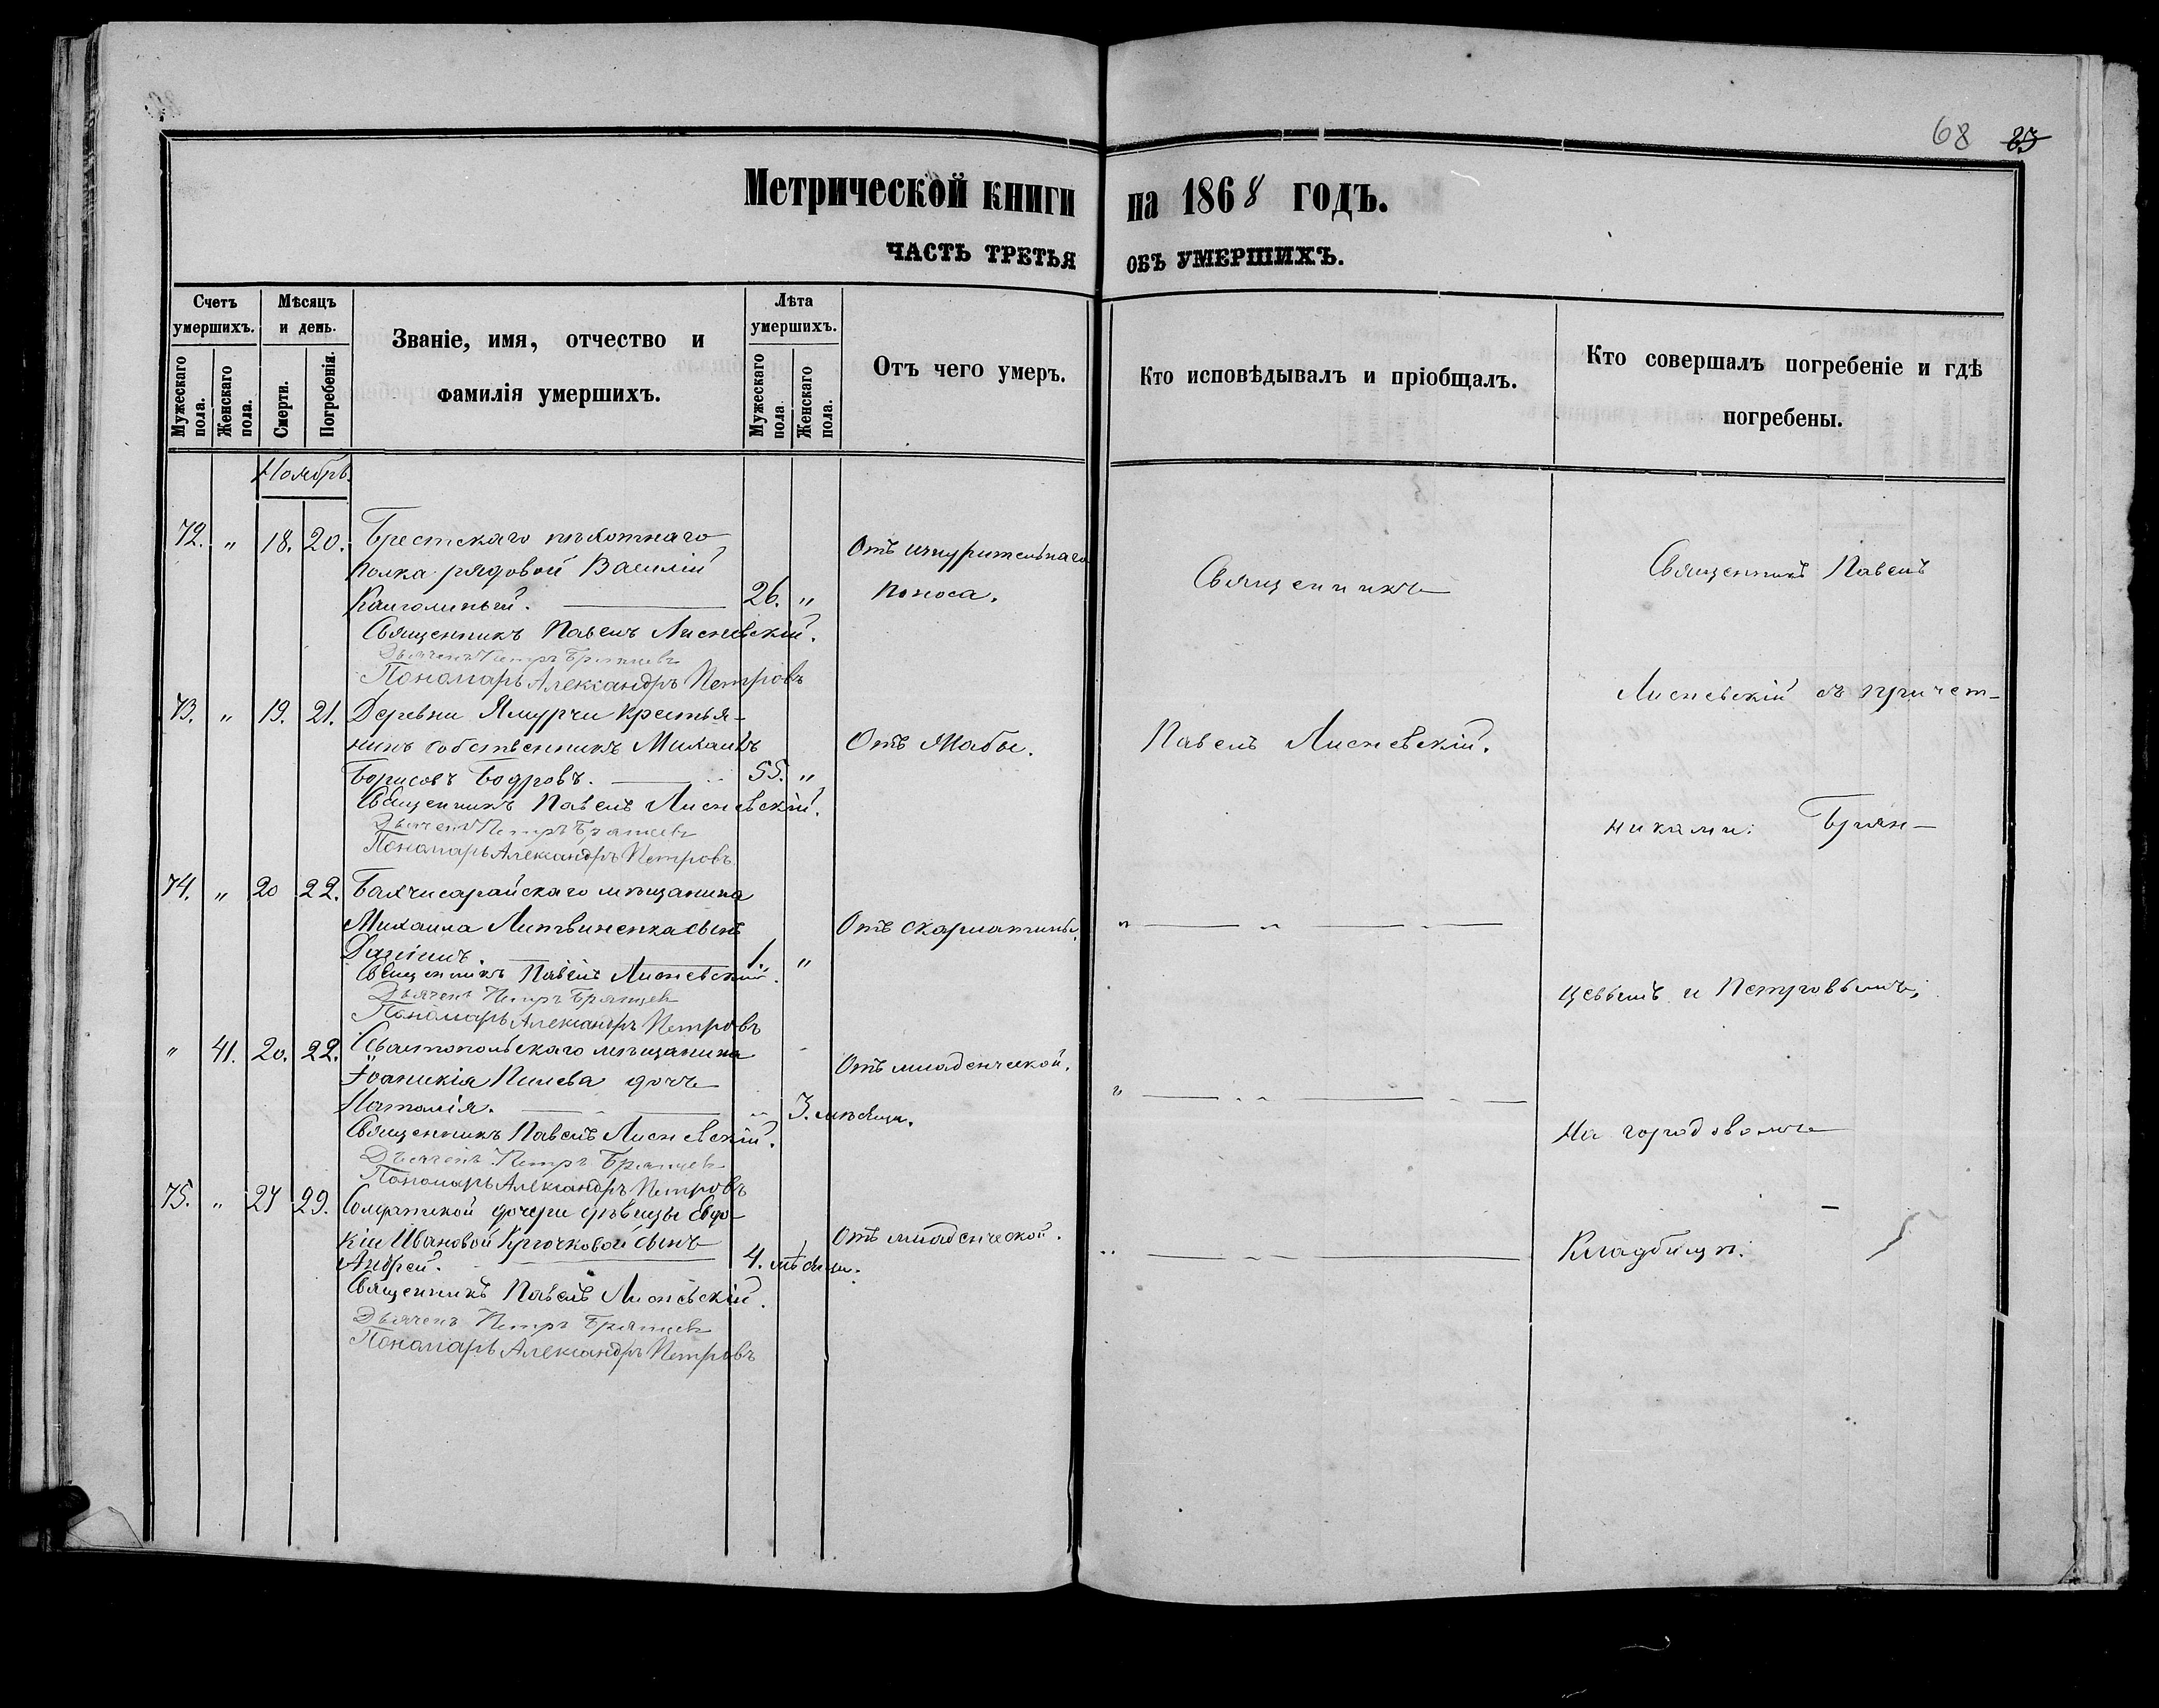 68 83
Метрической книги на 1868 годъ.
ЧАСТЬ ТРЕТЬЯ ОБЪ УМЕРШИХЪ.
Счетъ умершихъ.
Мужескаго пола.
Женскаго пола.
Мѣсяцъ и день.
Смерти.
Погребенія.
Званіе, имя, отчество и фамилія умершихъ.
Лѣта умершихъ.
Мужескаго пола.
Женскаго пола.
Отъ чего умеръ.
Кто исповѣдывалъ и пріобщалъ.
Кто совершалъ погребеніе и гдѣ погребены.
Ноябрь.
72. „ 18. 20. Брестскаго пѣхотнаго
полка рядовой Василій
26. „
Отъ изнурительнаго
поноса.
Священникъ Павелъ Лисневскій.
Дьячекъ Петръ Брянцевъ
Пономарь Александръ Петровъ
73. „ 19. 21. Деревни Ямурчи крестья-
нинъ собственникъ Михаилъ
Борисовъ Бодровъ. 55. „
Отъ Жабы.
Священникъ Павелъ Лисневскій.
Дьячекъ Петръ Брянцевъ
Пономарь Александръ Петровъ
74. „ 20 22. Бахчисарайскаго мѣщанина
Михаила Литвиненка сынъ
Даніилъ. 1. „
Отъ скарлатины.
Священникъ Павелъ Лисневскій.
Дьячекъ Петръ Брянцевъ
Пономарь Александръ Петровъ
„ 41. 20. 22. Севастопольскаго мѣщанина
Іоанникія Пилева дочь
Наталія. „ 3. мѣсяца.
Отъ младенческой.
Священникъ Павелъ Лисневскій.
Дьячекъ Петръ Брянцевъ
Пономарь Александръ Петровъ
75. „ 27 29. Солдатской дочери дѣвицы Евдо-
кіи Ивановой Крючковой сынъ
Андрей. 4. мѣсяца.
Отъ младенческой.
Священникъ Павелъ Лисневскій.
Дьячекъ Петръ Брянцевъ
Пономарь Александръ Петровъ
Священникъ
Павелъ Лисневскій.
Священникъ Павелъ
Лисневскій съ причет-
никами: Брян-
цевымъ и Петровымъ,
На городовомъ
Кладбищѣ.